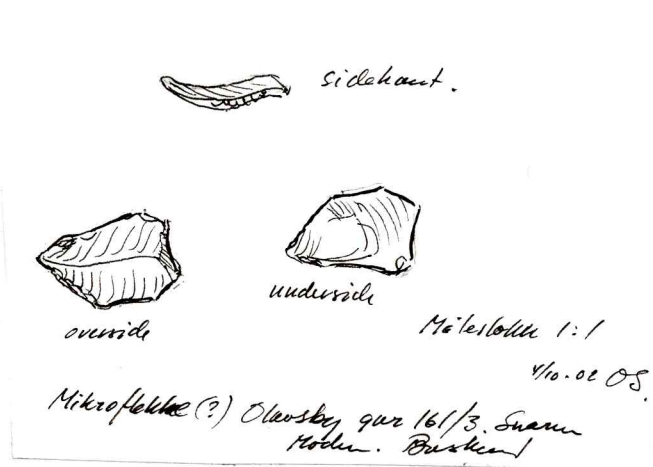 sidekant.
underside
overside
Målestokk 1:1
4/10-02 OS.
Mikroflekke (?) Olavsby gnr 161/3. Snarum
Modum. Buskerud